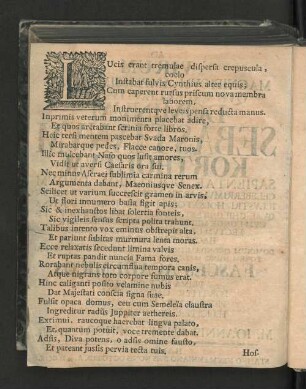 LUcis erant tremulae dispersa crepuscula,
coelo
Instabat fulvis Cynthius alter equis;
Cum caperent rursus priscum nova membra
laborem,
Instruerentque leves pensa reducta manus.
Inprimis veterum monimenta placebat adire,
Et quos servabant scrinia forte libros.
Heic tersi mentem pascebat Svada Maronis,
Mirabarque pedes, Flacce canore, tuos.
Illic mulcebant Naso quos lusit amores,
Vidit ut averti Caesaris ora sui.
Nec minus Ascraei sublimia carmina rerum
Argumenta dabant, Maeoniusque Senex.
Scilicet ut varium succrescit gramen in arvis,
Ut flori innumero basia figit apis:
Sic & inexhaustos libat solertia fonteis,
Sic vigileis sensus scripta polita trahunt.
Talibus intento vox eminus obstrepit alta,
Et pariunt subitus murmura lenta moras.
Ecce relictaris scandunt limina valvis
Et rupras pandit nuncia Fama fores.
Rorabant nebulis circumflua tempora canis,
Atque nigrans toto corpore fumus erat.
Hinc caliganti posito velamine nubis
Dat Majestati conscia signa suae.
Fulsit opaca domus, ceu cum Semeleia claustra
Ingreditur radiis Juppiter aethereis.
Extimui, raucoque haerebat lingva palato,
Et, quantum potuit, voce tremente dabat.
Adsis, Diva potens, o adsis omine fausto,
Et pateant jussis pervia tecta tuis.
Hos-